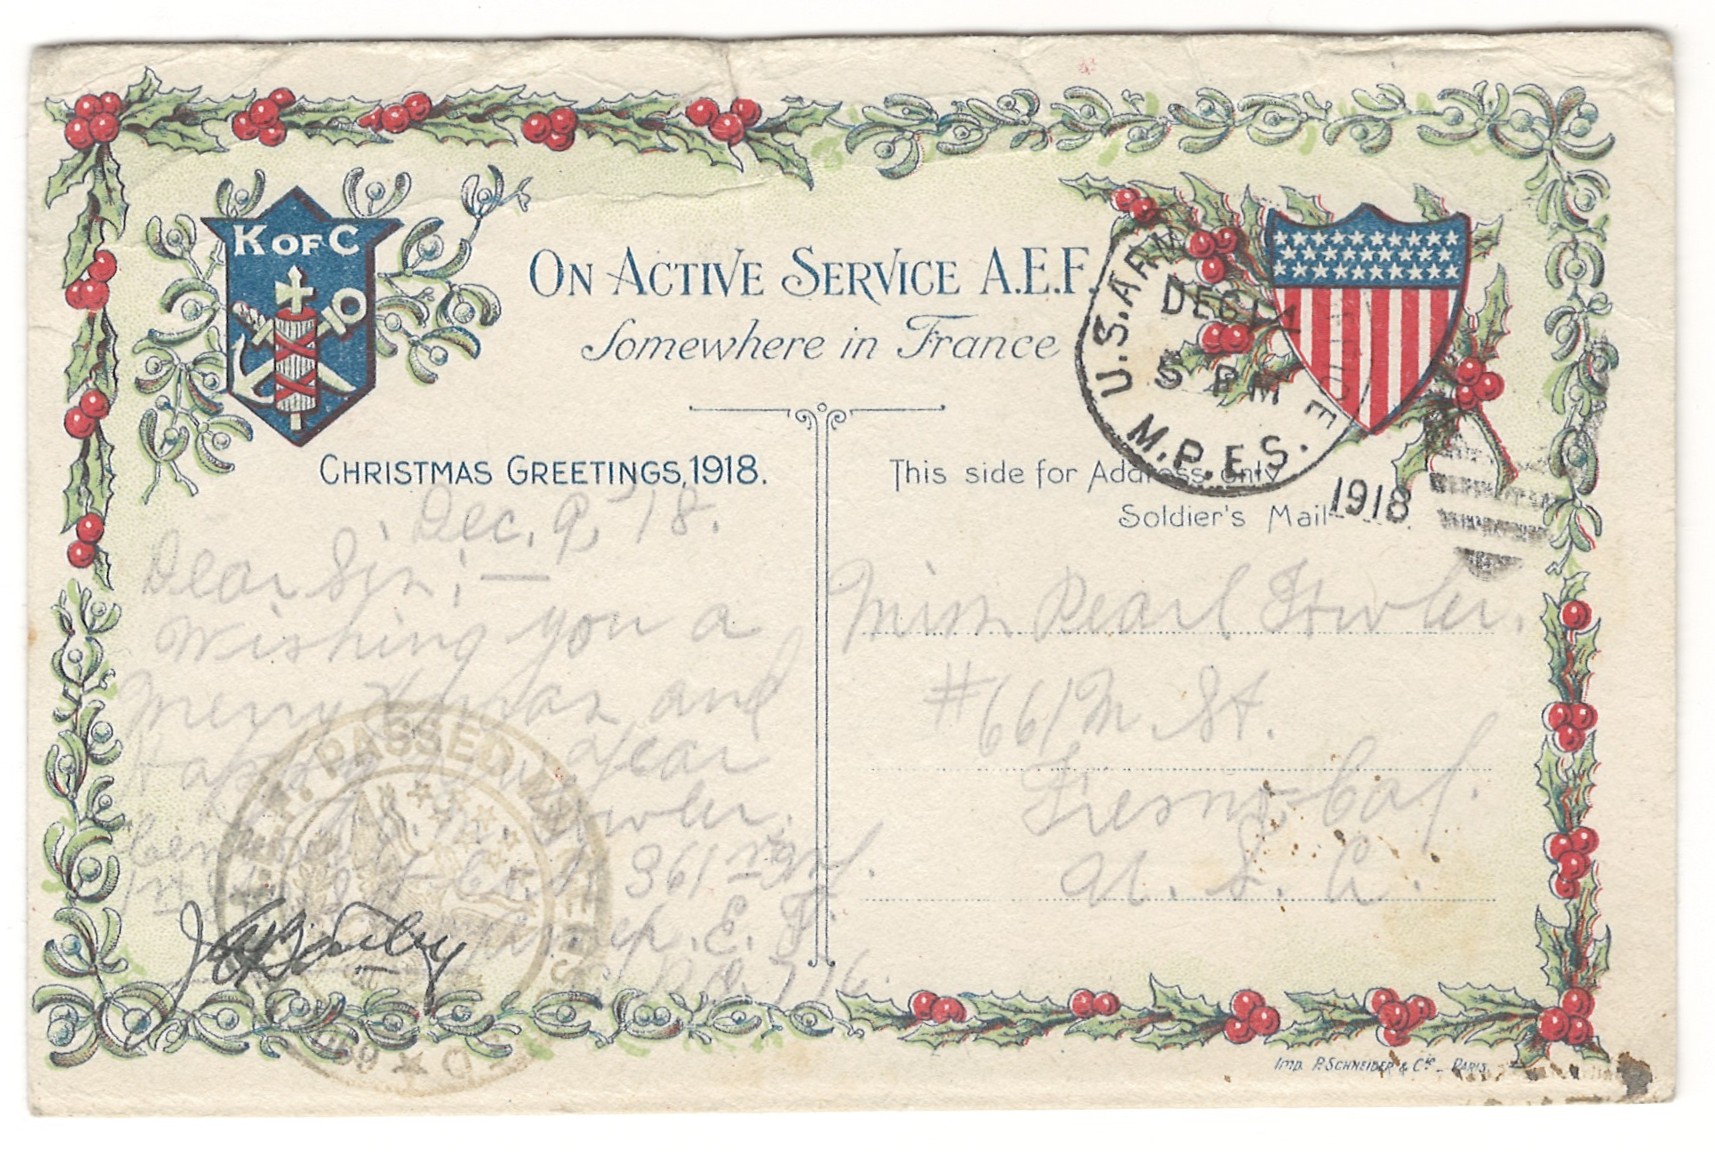 K OF C
ON ACTIVE SERVICE A.E.F.
Somewhere in France
U.S. ARMY
DEC 14
5 PM
M.P.E.S.
1918
CHRISTMAS GREETINGS, 1918.
This side for Address only
Soldier's Mail
Dec. 9, '18.
Dear Sis; —
Wishing you a
Merry Xmas and
Happy New Year
M. Fowler.
361 Inf.
Amer. E. F.
716.
Miss Pearl Fowler.
#661 M St.
Fresno, Cal.
U. S. A.
A.E.F. PASSED AS CENSORED
IMP. P. SCHNEIDER & Cie _ PARIS